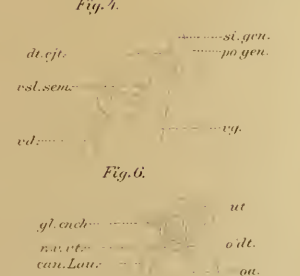 Fig. 4.
si. gen.
dt. ejt.
po gen.
vsl. sem.
vg.
vd.
Fig. 6.
ut
gl. cnch
o'dt.
can. Lau.
oa.